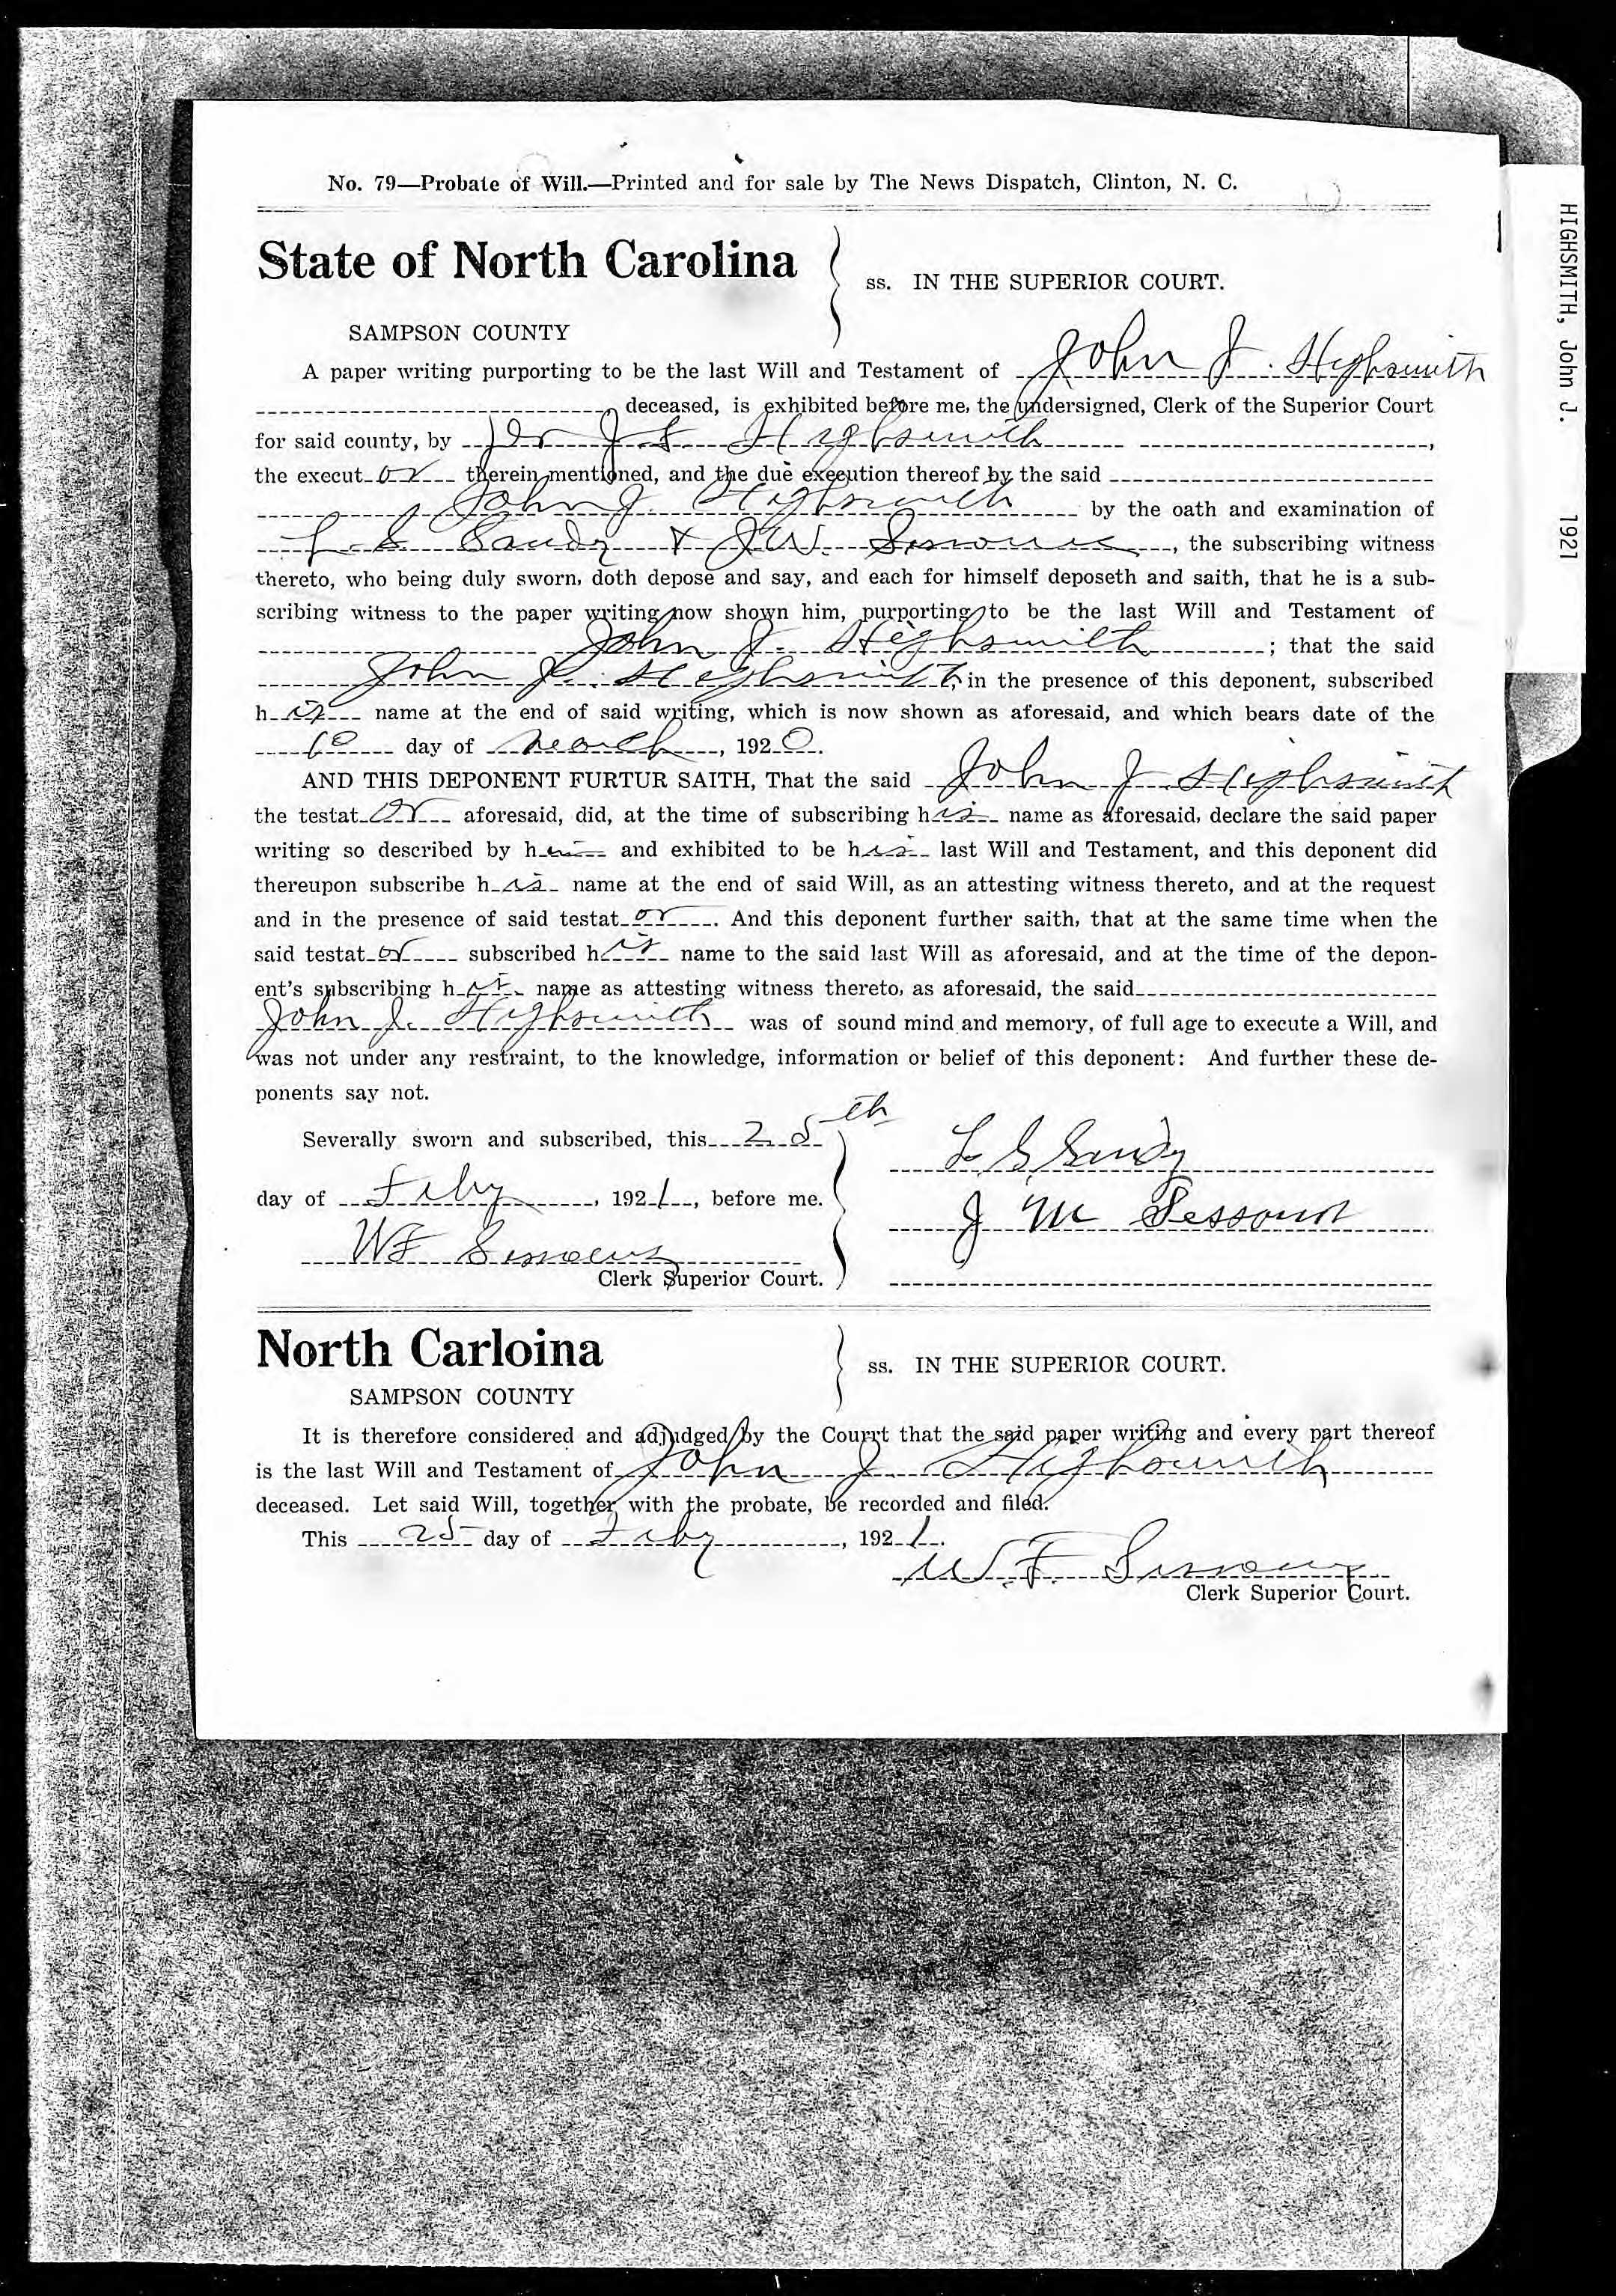 No. 79—Probate of Will.—Printed and for sale by The News Dispatch, Clinton, N. C.
State of North Carolina
ss. IN THE SUPERIOR COURT.
SAMPSON COUNTY
A paper writing purporting to be the last Will and Testament of John J. Highsmith
deceased, is exhibited before me, the undersigned, Clerk of the Superior Court
for said county, by Highsmith,
the executor therein mentioned, and the due execution thereof by the said
John J. Highsmith by the oath and examination of
L. S. Bandy & J W. Sessoms, the subscribing witness
thereto, who being duly sworn, doth depose and say, and each for himself deposeth and saith, that he is a sub-
scribing witness to the paper writing now shown him, purporting to be the last Will and Testament of
John J. Highsmith; that the said
John J. Highsmith, in the presence of this deponent, subscribed
his name at the end of said writing, which is now shown as aforesaid, and which bears date of the
10 day of March, 1920.
AND THIS DEPONENT FURTUR SAITH, That the said John J. Highsmith
the testator aforesaid, did, at the time of subscribing his name as aforesaid, declare the said paper
writing so described by him and exhibited to be his last Will and Testament, and this deponent did
thereupon subscribe his name at the end of said Will, as an attesting witness thereto, and at the request
and in the presence of said testator. And this deponent further saith, that at the same time when the
said testator subscribed his name to the said last Will as aforesaid, and at the time of the depon-
ent's subscribing his name as attesting witness thereto, as aforesaid, the said
John J. Highsmith was of sound mind and memory, of full age to execute a Will, and
was not under any restraint, to the knowledge, information or belief of this deponent: And further these de-
ponents say not.
Severally sworn and subscribed, this 25th
day of Feby, 1921, before me.
W F Sessoms
Clerk Superior Court.
L. S. Bandy
J M Sessoms
North Carloina
ss. IN THE SUPERIOR COURT.
SAMPSON COUNTY
It is therefore considered and adjudged by the Courrt that the said paper writing and every part thereof
is the last Will and Testament of John J. Highsmith
deceased. Let said Will, together with the probate, be recorded and filed.
This 25 day of Feby, 1921.
W. F. Sessoms
Clerk Superior Court.
HIGHSMITH, John J. 1921